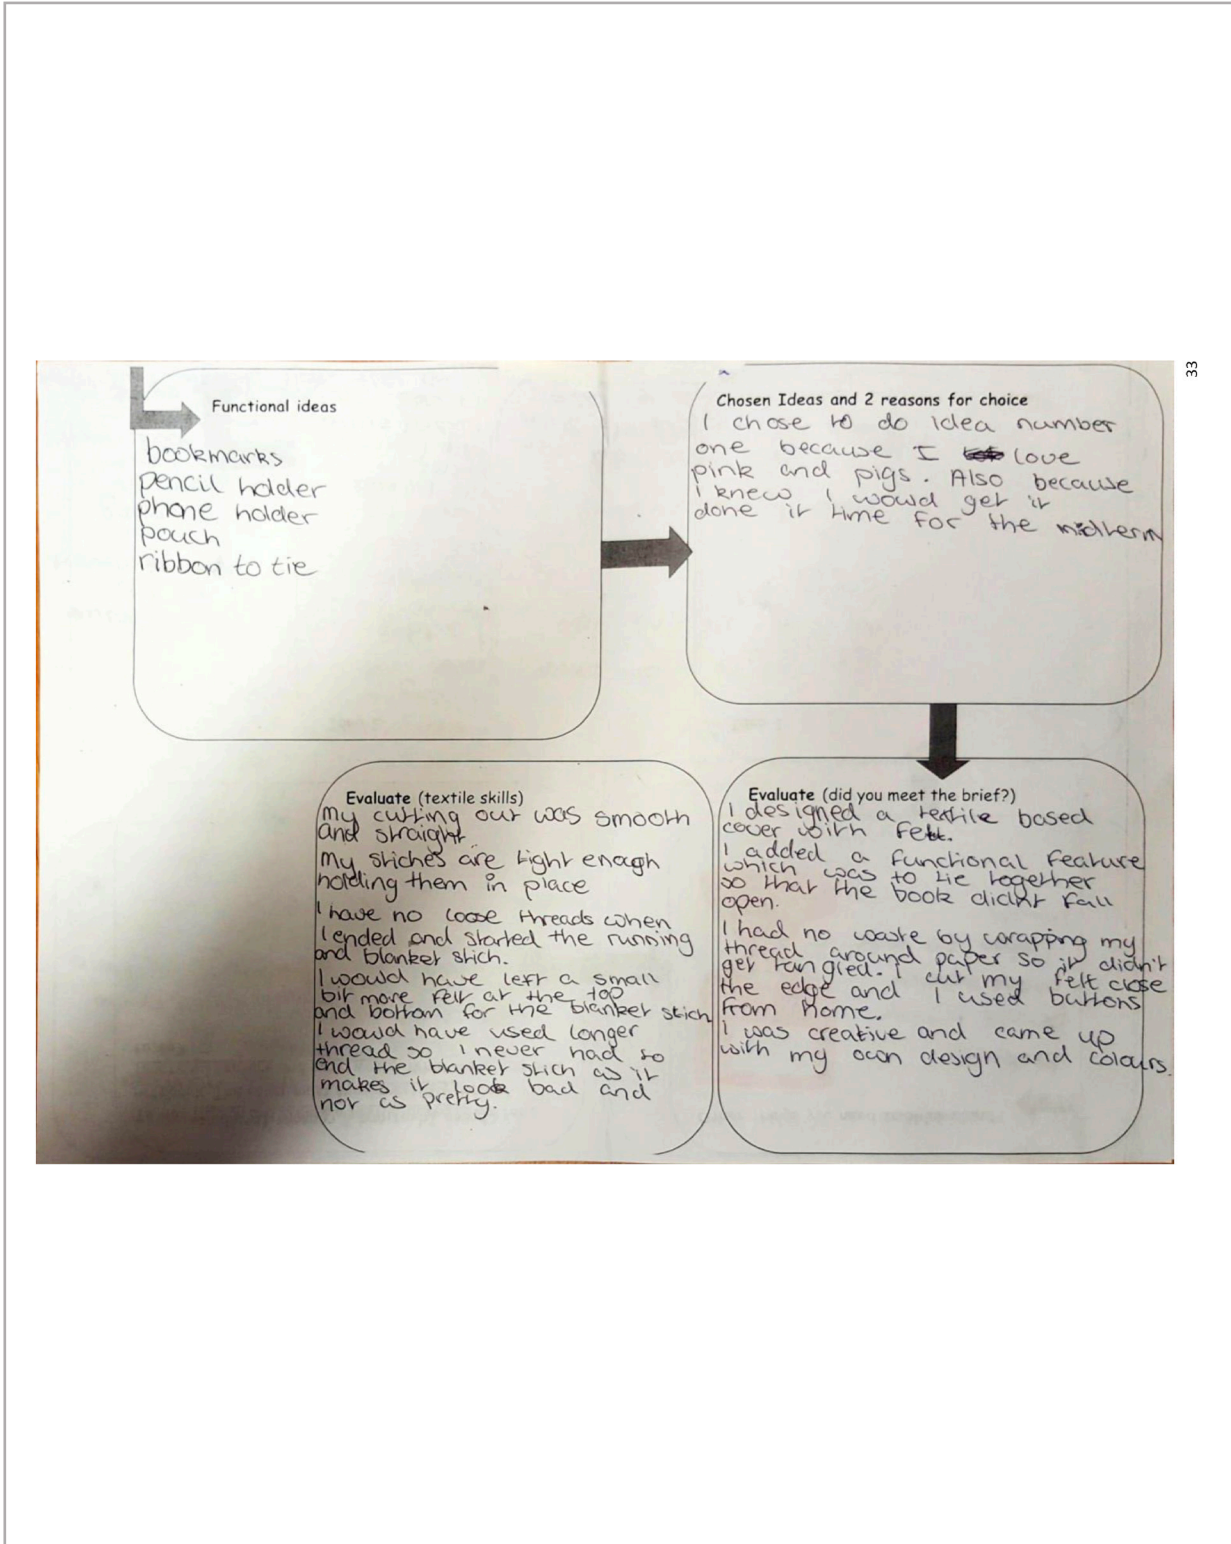 33
Functional ideas
bookmarks
pencil holder
phone holder
pouch
ribbon to tie
Chosen Ideas and 2 reasons for choice
I chose to do idea number
one because I love
pink and pigs. Also because
i knew I would get it
done it time for the midterm
Evaluate (textile skills)
My cutting out was smooth
and straight.
My stiches are tight enough
holding them in place
I have no loose threads when
I ended and started the running
and blanket stich.
I would have left a small
bit more felt at the top
and bottom for the blanket stich
I would have used longer
thread so I never had to
end the blanket stich as it
makes it look bad and
not as pretty.
Evaluate (did you meet the brief?)
I designed a textile based
cover with felt.
I added a functional feature
which was to tie together
so that the book didnt fall
open.
I had no waste by wrapping my
thread around paper so it didn't
get tangled. I cut my felt close
the edge and I used buttons
from home.
I was creative and came up
with my own design and colours.